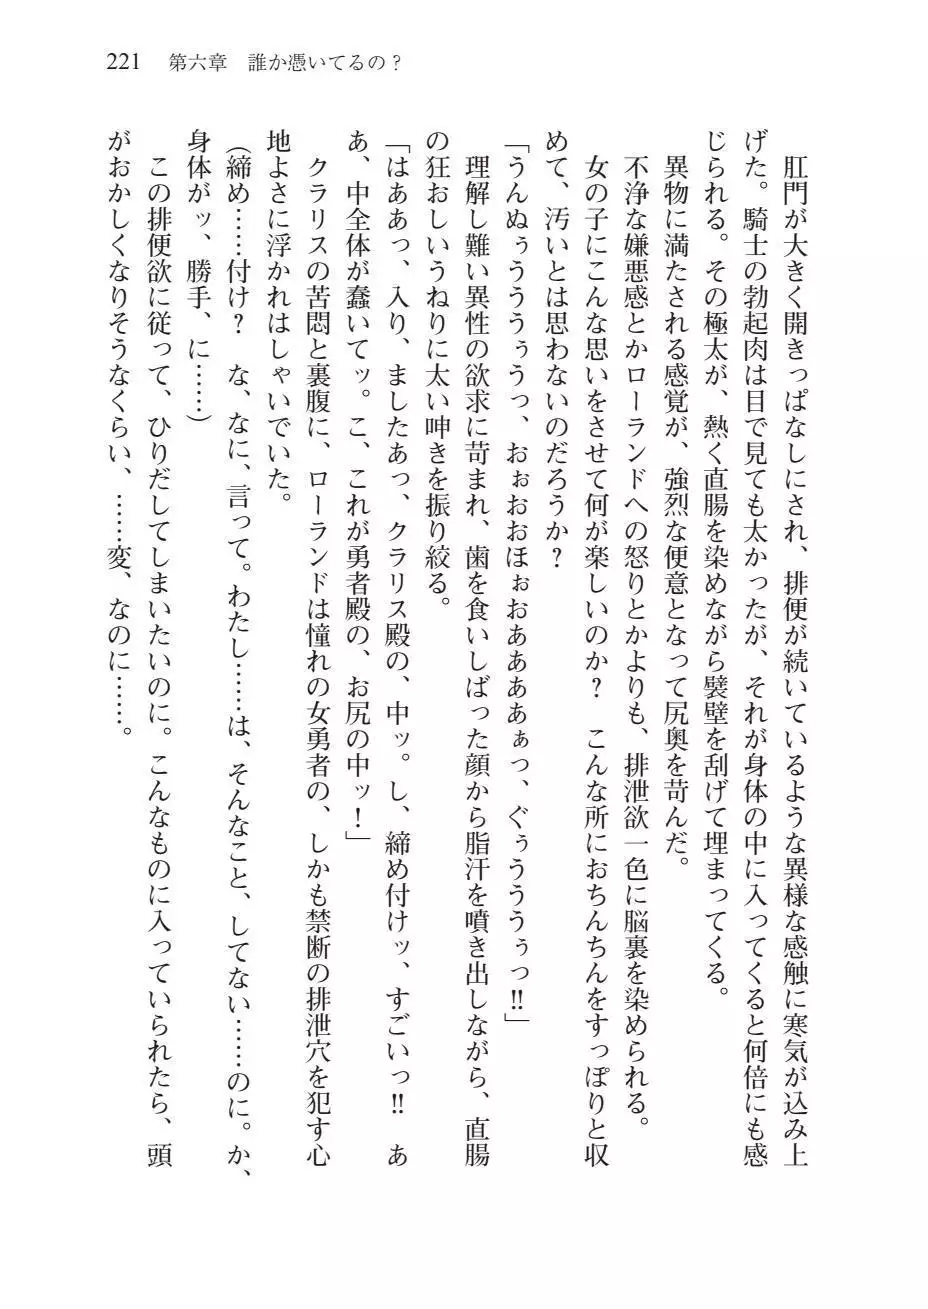 221　第六章　誰か憑いてるの？
　肛門が大きく開きっぱなしにされ、排便が続いているような異様な感触に寒気が込み上
げた。騎士の勃起肉は目で見ても太かったが、それが身体の中に入ってくると何倍にも感
じられる。その極太が、熱く直腸を染めながら襞壁を刮げて埋まってくる。
　異物に満たされる感覚が、強烈な便意となって尻奥を苛んだ。
　不浄な嫌悪感とかローランドへの怒りとかよりも、排泄欲一色に脳裏を染められる。
　女の子にこんな思いをさせて何が楽しいのか？　こんな所におちんちんをすっぽりと収
めて、汚いとは思わないのだろうか？
「うんぬぅううぅうっ、おぉおおほぉおああああぁっ、ぐぅうううぅっ!!」
　理解し難い異性の欲求に苛まれ、歯を食いしばった顔から脂汗を噴き出しながら、直腸
の狂おしいうねりに太い呻きを振り絞る。
「はああっ、入り、ましたあっ、クラリス殿の、中ッ。し、締め付けッ、すごいっ!!　あ
あ、中全体が蠢いてッ。こ、これが勇者殿の、お尻の中ッ！」
　クラリスの苦悶と裏腹に、ローランドは憧れの女勇者の、しかも禁断の排泄穴を犯す心
地よさに浮かれはしゃいでいた。
（締め……付け？　な、なに、言って。わたし……は、そんなこと、してない……のに。か、
身体がッ、勝手、に……）
　この排便欲に従って、ひりだしてしまいたいのに。こんなものに入っていられたら、頭
がおかしくなりそうなくらい、……変、なのに……。